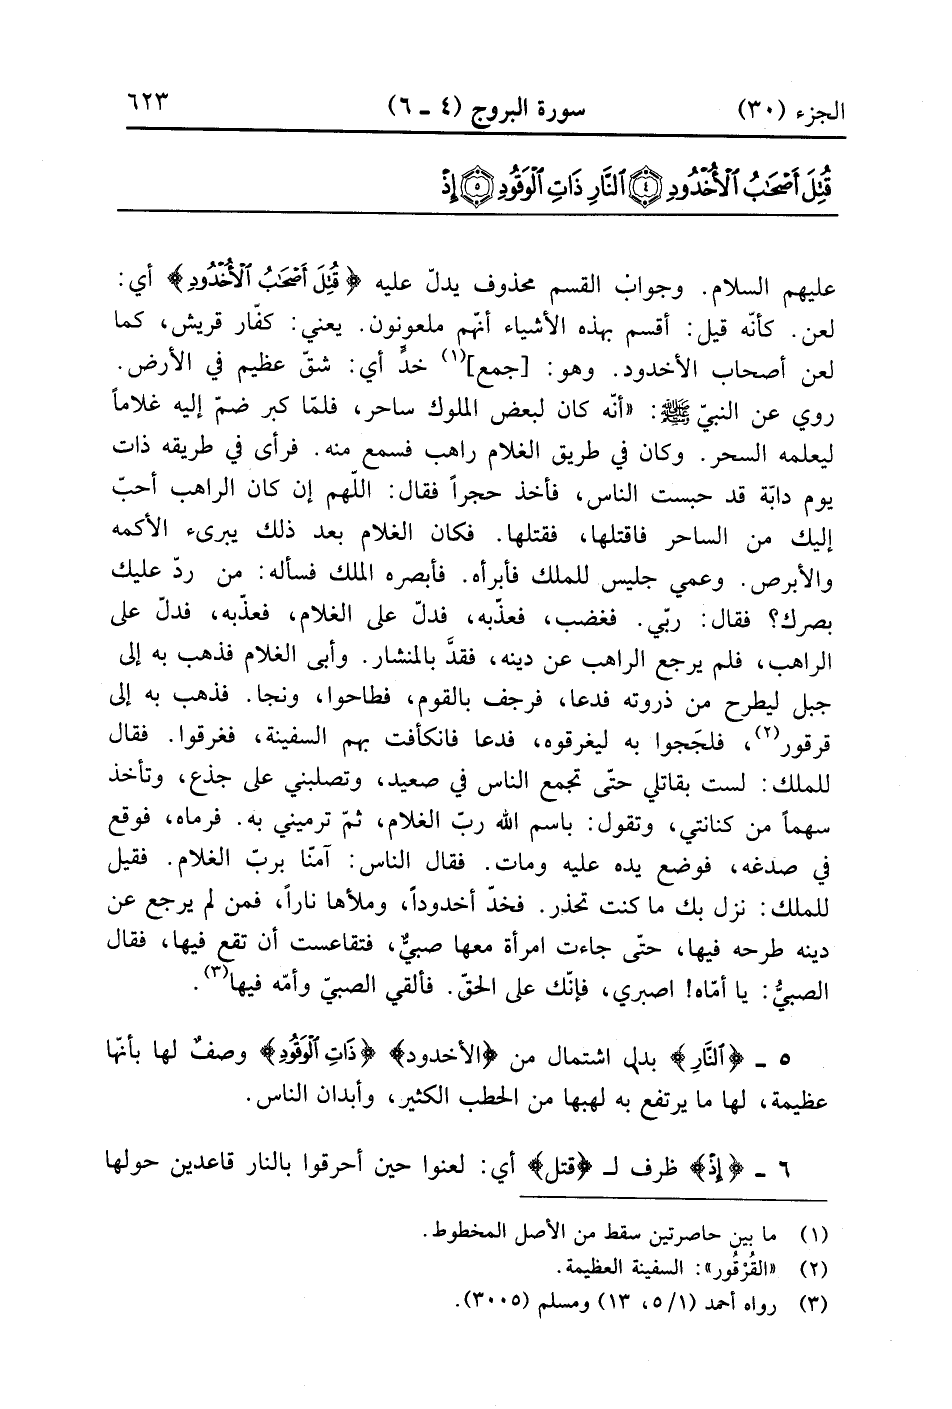 الجزء (٣٠) سورة البروج (٤ ـ ٦) ٦٢٣
قُتِلَ أَصْحَٰبُ ٱلْأُخْدُودِ ﴿٤﴾ ٱلنَّارِ ذَاتِ ٱلْوَقُودِ ﴿٥﴾ إِذْ
عليهم السلام. وجواب القسم محذوف يدلّ عليه ﴿قُتِلَ أَصْحَٰبُ ٱلْأُخْدُودِ﴾ أي:
لعن. كأنّه قيل: أقسم بهذه الأشياء أنّهم ملعونون. يعني: كفّار قريش، كما
لعن أصحاب الأخدود. وهو: [جمع](١) خدٍّ أي: شقّ عظيم في الأرض.
روي عن النبيّ ﷺ: «أنّه كان لبعض الملوك ساحر، فلمّا كبر ضمّ إليه غلاماً
ليعلمه السحر. وكان في طريق الغلام راهب فسمع منه. فرأى في طريقه ذات
يوم دابّة قد حبست الناس، فأخذ حجراً فقال: اللّهم إن كان الراهب أحبّ
إليك من الساحر فاقتلها، فقتلها. فكان الغلام بعد ذلك يبرىء الأكمه
والأبرص. وعمي جليس للملك فأبرأه. فأبصره الملك فسأله: من ردّ عليك
بصرك؟ فقال: ربّي. فغضب، فعذّبه، فدلّ على الغلام، فعذّبه، فدلّ على
الراهب، فلم يرجع الراهب عن دينه، فقدَّ بالمنشار. وأبى الغلام فذهب به إلى
جبل ليطرح من ذروته فدعا، فرجف بالقوم، فطاحوا، ونجا. فذهب به إلى
قرقور(٢)، فلجّجوا به ليغرقوه، فدعا فانكأفت بهم السفينة، فغرقوا. فقال
للملك: لست بقاتلي حتّى تجمع الناس في صعيد، وتصلبني على جذع، وتأخذ
سهماً من كنانتي، وتقول: باسم الله ربّ الغلام، ثمّ ترميني به. فرماه، فوقع
في صدغه، فوضع يده عليه ومات. فقال الناس: آمنّا بربّ الغلام. فقيل
للملك: نزل بك ما كنت تحذر. فخدّ أخدوداً، وملأها ناراً، فمن لم يرجع عن
دينه طرحه فيها، حتّى جاءت امرأة معها صبيٌّ، فتقاعست أن تقع فيها، فقال
الصبيُّ: يا أمّاه! اصبري، فإنّك على الحقّ. فألقي الصبيّ وأمّه فيها(٣).
٥ ـ ﴿ٱلنَّارِ﴾ بدل اشتمال من ﴿الأخدود﴾ ﴿ذَاتِ ٱلْوَقُودِ﴾ وصفٌ لها بأنّها
عظيمة، لها ما يرتفع به لهبها من الحطب الكثير، وأبدان الناس.
٦ ـ ﴿إِذْ﴾ ظرف لـ ﴿قتل﴾ أي: لعنوا حين أحرقوا بالنار قاعدين حولها
(١) ما بين حاصرتين سقط من الأصل المخطوط.
(٢) «القُرْقُور»: السفينة العظيمة.
(٣) رواه أحمد (٥/١، ١٣) ومسلم (٣٠٠٥).